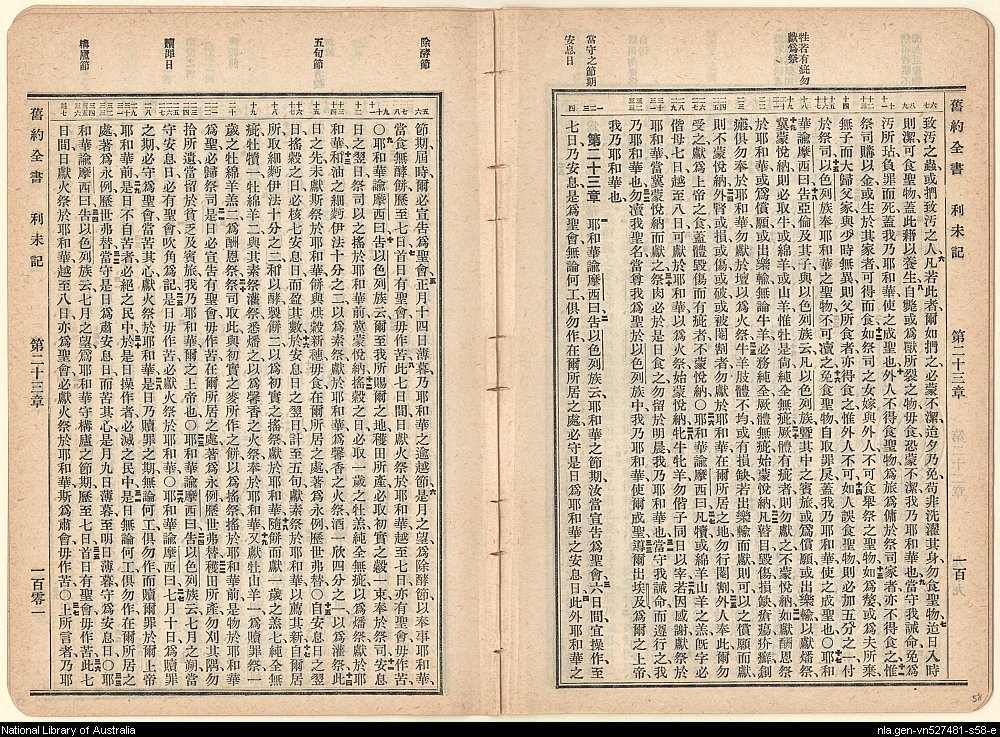 舊約全書 利未記 第二十三章 一百
牲若有疵勿
獻爲祭
當守之節期
安息日
致汚之蟲或捫致汚之人凡若此者爾如捫之必蒙不潔迨夕乃免苟非洗濯其身勿食聖物迨日入時
則潔可食聖物蓋此藉以養生自斃或爲獸所裂之物毋食恐蒙不潔我乃耶和華也當守我誡命免爲
汚所玷負罪而死蓋我乃耶和華使之成聖也外人不得食聖物爲旅爲傭於祭司家者亦不得食之惟
祭司購以金或生於其家者可得而食如祭司之女嫁與外人不可食舉祭之聖物如爲嫠或爲夫所棄
無子而大歸父家與少時無異則父所食者亦得食之惟外人不可如人誤食聖物則必加五分之一付
於祭司以色列族奉耶和華之聖物不可瀆之免食聖物自取罪戾蓋我乃耶和華使之成聖也〇耶和
華諭摩西曰告亞倫及其子與以色列族云凡以色列族曁其中之賓旅或爲償願或出樂輸以獻燔祭
冀蒙悅納則必取牛或綿羊或山羊惟牡是尙純全無疵厥體有疵者則勿獻之不蒙悅納如獻酬恩祭
於耶和華或爲償願或出樂輸無論牛羊必務純全厥體無疵始蒙悅納凡瞽目毀傷損缺
俱勿奉於耶和華勿獻於壇以爲火祭牛羊肢體不均或有損缺若出樂輸而獻則可以之償願而獻
則不蒙悅納外腎或損或傷或破或被閹割者勿獻於耶和華在爾所居之地勿行閹割外人奉此爾勿
受之獻爲上帝之食蓋體毀傷而有疵者不蒙悅納〇耶和華諭摩西曰凡犢或綿羊山羊之羔旣字必
偕母七日越至八日可獻於耶和華以爲火祭始蒙悅納牝牛牝羊勿偕子同日以宰若因感謝獻祭於
耶和華當冀蒙悅納而獻之祭肉必於是日食之勿留於明晨我乃耶和華也當守我誡命而遵行之我
乃耶和華也勿瀆我聖名當尊我爲聖於以色列族中我乃耶和華使爾成聖導爾出埃及爲爾之上帝
我乃耶和華也
第二十三章 耶和華諭摩西曰告以色列族云耶和華之節期汝當宣告爲聖會六日間宜操作至
七日乃安息是爲聖會無論何工俱勿作在爾所居之處必守是日爲耶和華之安息日此外耶和華之
除酵節
五旬節
贖罪日
構廬節
節期屆時爾必宣告爲聖會正月十四日薄暮乃耶和華之逾越節是月之望爲除酵節以奉事耶和華
當食無酵餅歷至七日首日有聖會毋作苦此七日間日獻火祭於耶和華越至七日亦有聖會毋作苦
〇耶和華諭摩西曰告以色列族云爾至我所賜爾之地穫田所產必取初實之穀一束奉於祭司安息
日之翌日祭司以之搖於耶和華前冀蒙悅納搖穀之日必取一歲之牡羔純全無疵以爲燔祭獻於耶
和華和油之細麪伊法十分之二以爲素祭獻於耶和華爲馨香之火祭酒一欣四分之一以爲灌祭此
日之先未獻斯祭於耶和華餅與烘穀新穗毋食在爾所居之處著爲永例歷世弗替〇自安息日之翌
日搖穀之日必核七安息日而盈其數於七安息日之翌日計至五旬獻素祭於耶和華以薦其新自爾居
所取細麪伊法十分之二和以酵製餅二以爲初實之搖祭獻於耶和華隨餅而獻一歲之羔七純全無
疵牡犢一牡綿羊二與其素祭灌祭悉燔之以爲馨香之火祭奉於耶和華又獻牡山羊一爲贖罪祭一
歲之牡綿羊羔二爲酬恩祭祭司取此與初實之麥所作之餅以爲搖祭搖於耶和華前是物於耶和華
爲聖必歸祭司是日必宣告有聖會毋作苦在爾所居之處著爲永例歷世弗替穫田所產勿刈其隅勿
拾所遺留於貧乏及賓旅我乃耶和華爾之上帝也〇耶和華諭摩西曰告以色列族云七月之朔當
守安息日必有聖會吹角爲記是日毋作苦必獻火祭於耶和華〇耶和華諭摩西曰七月十日爲贖罪
之期必守爲聖會當苦其心獻火祭於耶和華是日乃贖罪之期無論何工俱勿作而贖爾罪於爾上帝
耶和華前是日不自苦者必絕之民中於是日操作者必滅之民中是日無論何工俱勿作在爾所居之
處著爲永例歷世弗替當守是日爲肅安息日而苦其心是月九日薄暮至明日薄暮當守爲安息日〇耶
和華諭摩西曰告以色列族云七月之望爲耶和華守構廬之節期歷至七日首日有聖會毋作苦此七
日間日獻火祭於耶和華越至八日亦爲聖會必獻火祭於耶和華斯爲肅會毋作苦〇上所言者乃耶
舊約全書 利未記 第二十三章 一百零一
National Library of Australia
nla.gen-vn527481-s58-e